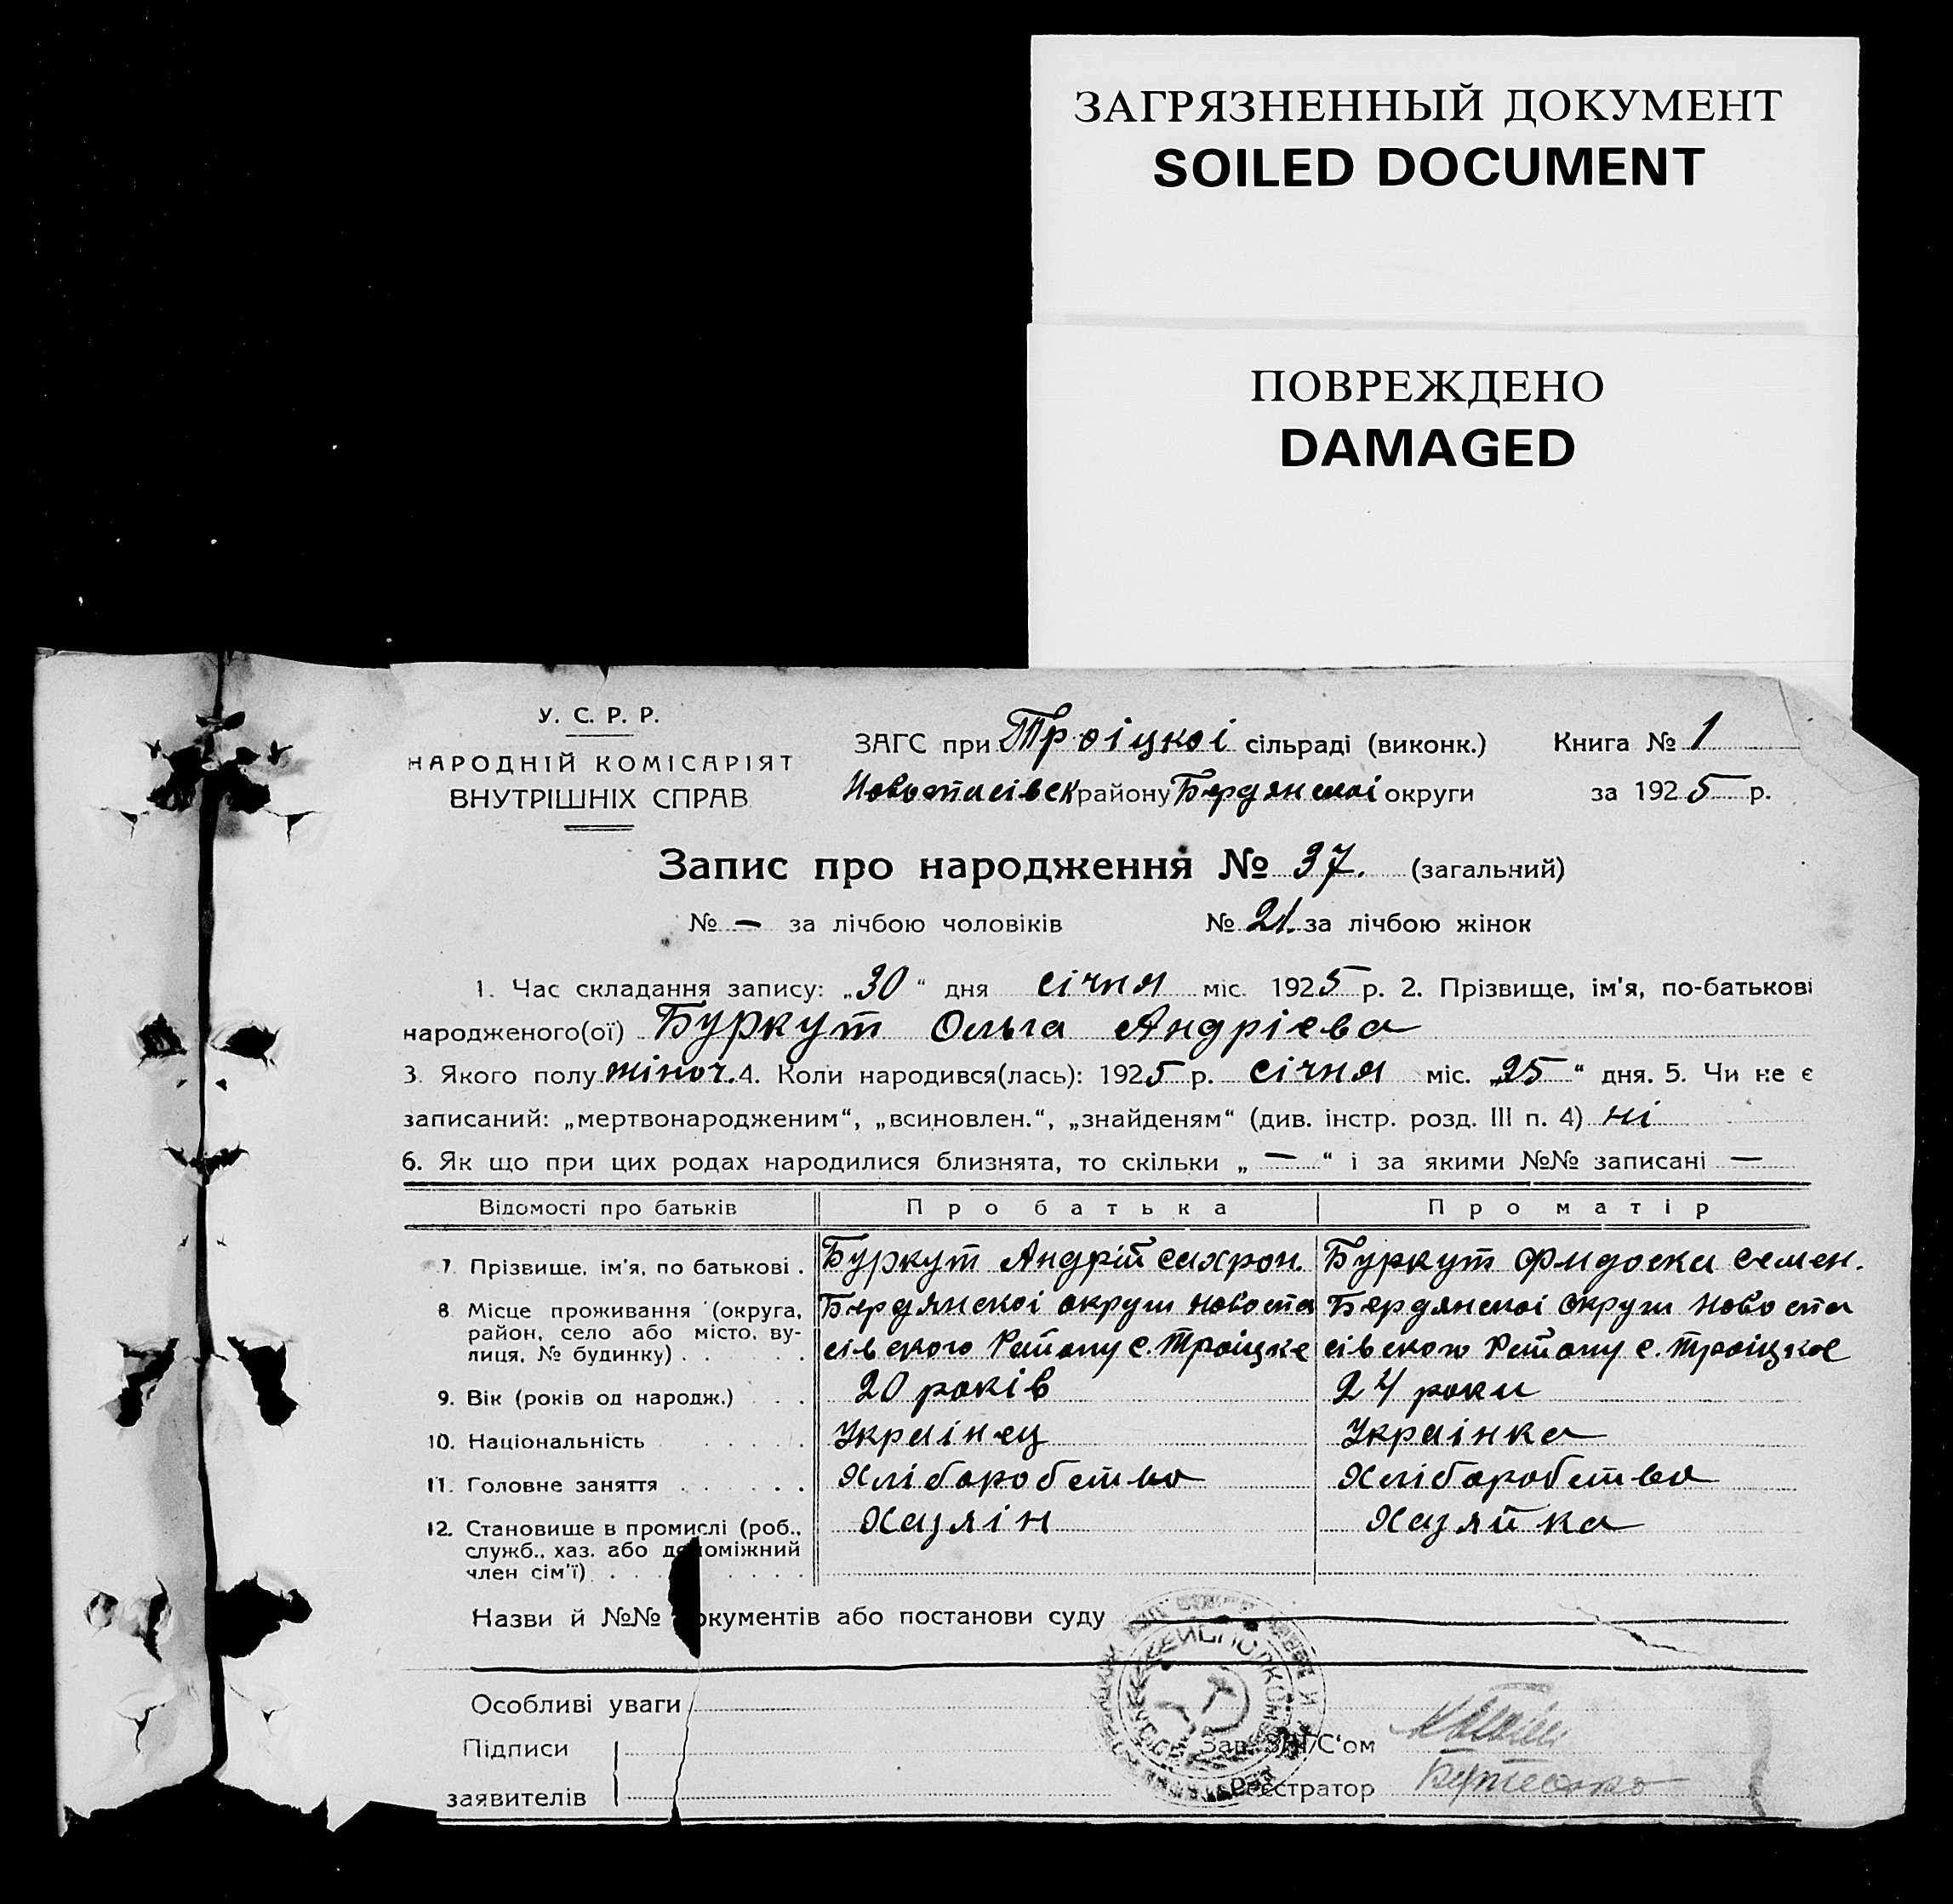 ЗАГРЯЗНЕННЫЙ ДОКУМЕНТ
SOILED DOCUMENT
ПОВРЕЖДЕНО
DAMAGED
У. С. Р. Р.
НАРОДНІЙ КОМІСАРІЯТ
ВНУТРІШНІХ СПРАВ
ЗАГС при Троіцкоі сільраді (виконк.) Книга № 1
Новостасівск району Бердянскоі округи за 1925 р.
Запис про народження № 37. (загальний)
№ — за лічбою чоловіків № 21. за лічбою жінок
1. Час складання запису: „30“ дня січня міс. 1925 р. 2. Прізвище, ім'я, по-батькові
народженого(ої) Буркут Ольга Андрієва
3. Якого полу жіноч. 4. Коли народився(лась): 1925 р. січня міс. „25“ дня. 5. Чи не є
записаний: „мертвонародженим“, „всиновлен.“, „знайденям“ (див. інстр. розд. III п. 4) ні
6. Як що при цих родах народилися близнята, то скільки „ — “ і за якими №№ записані —
Відомості про батьків Про батька Про матір
7. Прізвище, ім'я, по батькові . Буркут Андрій Сахрон. Буркут Фидоска Семен.
8. Місце проживання (округа, Бердянскоі округи Новоста Бердянскоі округи Новоста
район, село або місто, ву-
лиця, № будинку) . . . . сівского Району с. Троіцке сівского Району с. Троіцкое
9. Вік (років од народж.) . . . 20 років 24 роки
10. Національність . . . . . Украінец Украінка
11. Головне заняття . . . . . . Хліборобство Хліборобство
12. Становище в промислі (роб., Хазяін Хазяйка
служб., хаз. або допоміжний
член сім'ї) . . . . . . . .
Назви й №№ документів або постанови суду
Особливі уваги
Підписи Зав. ЗАГС'ом
заявителів Реєстратор